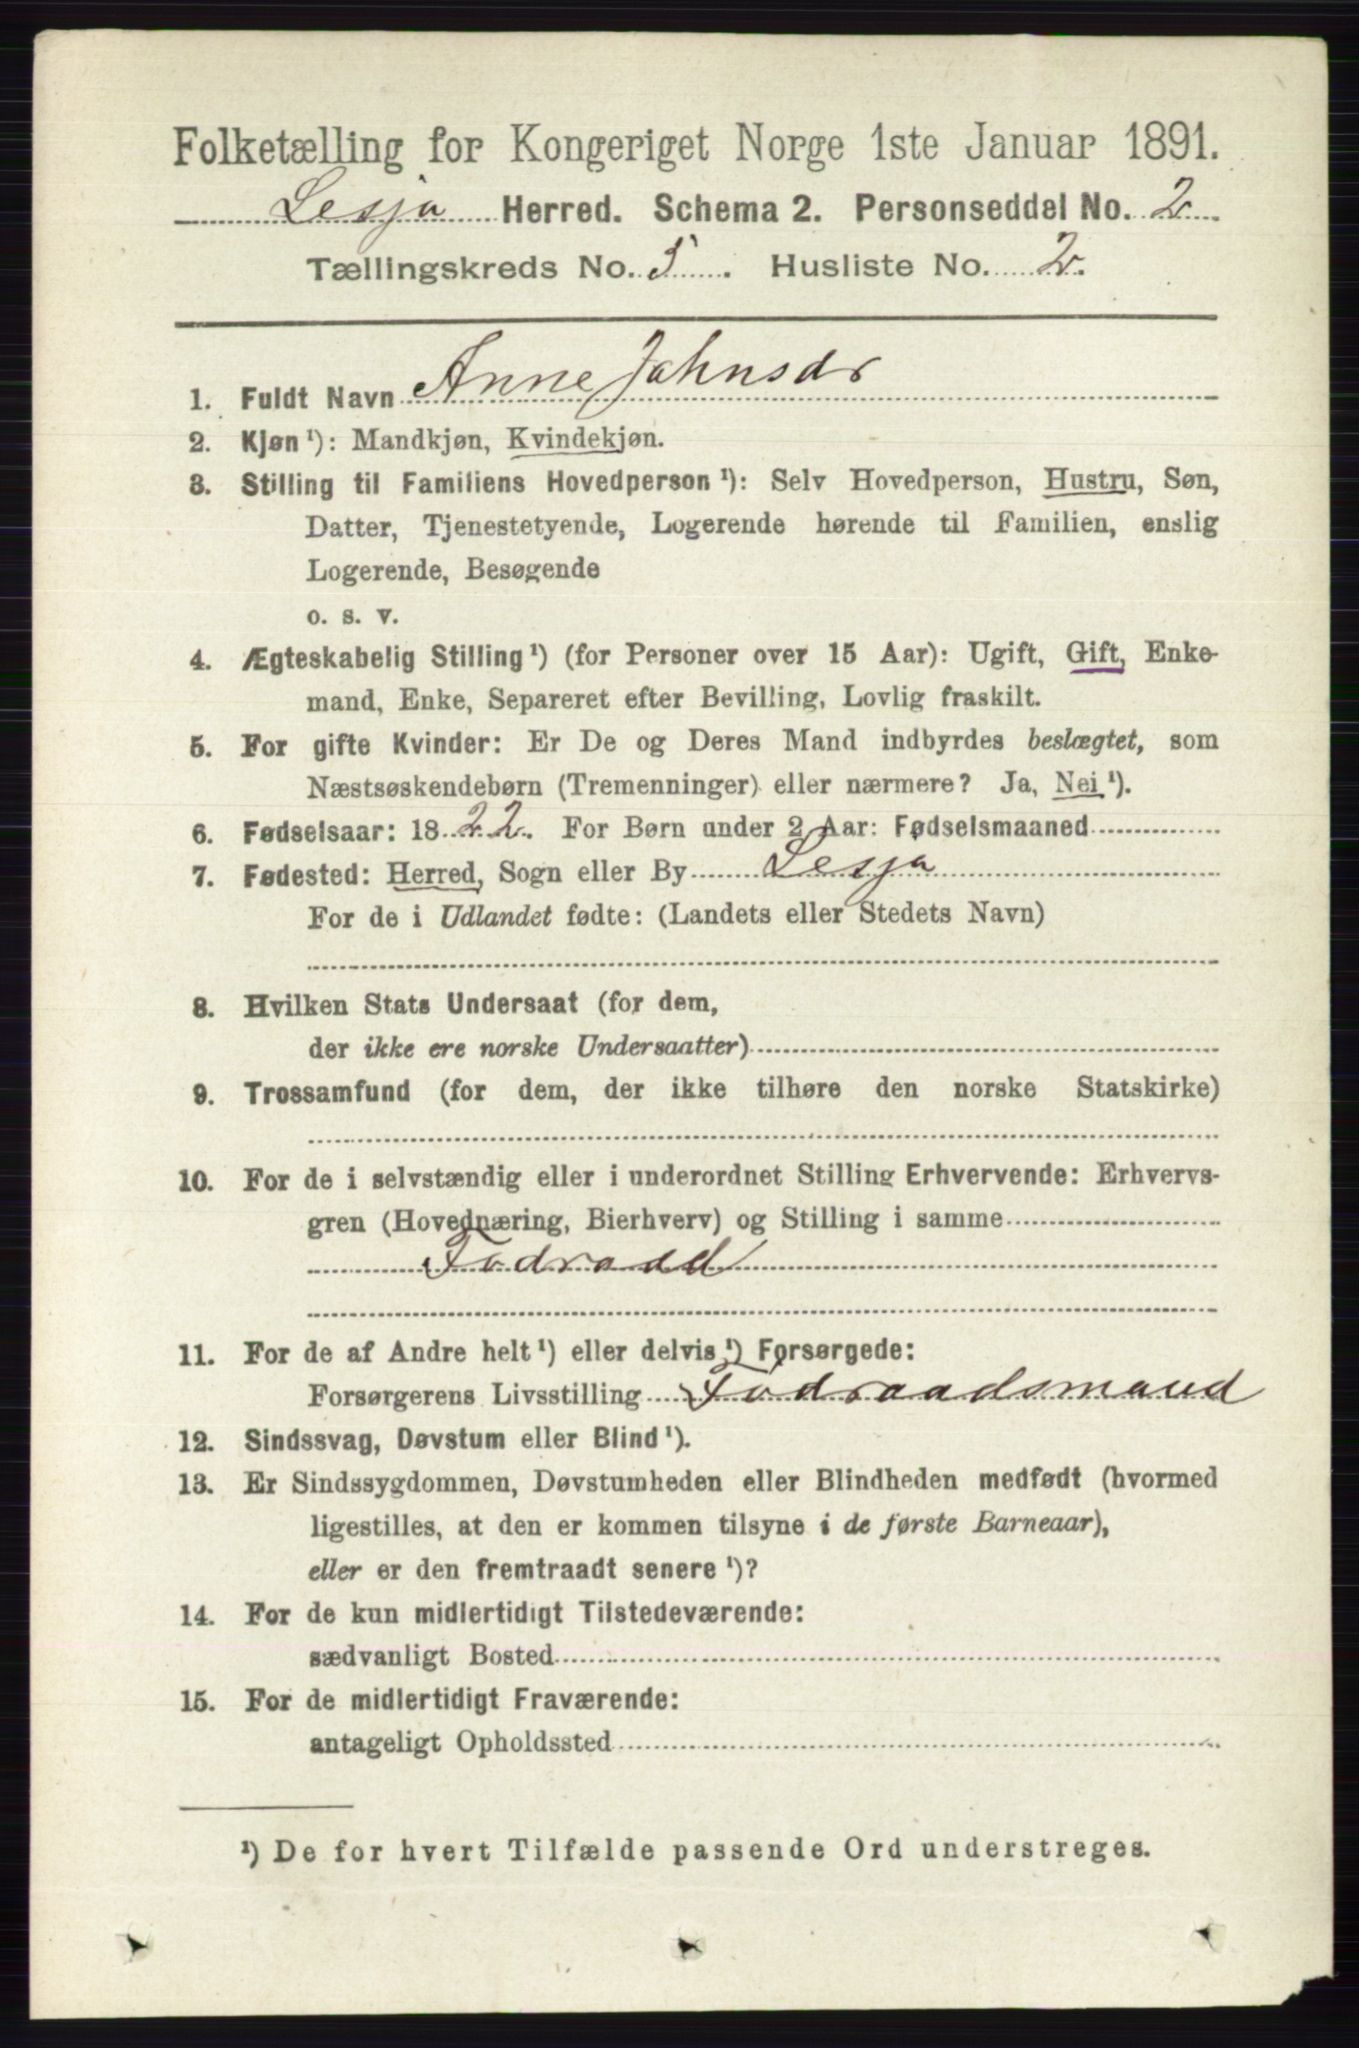 Folketælling for Kongeriget Norge 1ste Januar 1891.
Lesja Herred. Schema 2. Personseddel No. 2.
Tællingskreds No. 5. Husliste No. 2.
1. Fuldt Navn Anne Johnsdr
2. Kjøn ¹): Mandkjøn, Kvindekjøn.
3. Stilling til Familiens Hovedperson ¹): Selv Hovedperson, Hustru, Søn,
Datter, Tjenestetyende, Logerende hørende til Familien, enslig
Logerende, Besøgende
o. s. v.
4. Ægteskabelig Stilling ¹) (for Personer over 15 Aar): Ugift, Gift, Enke-
mand, Enke, Separeret efter Bevilling, Lovlig fraskilt.
5. For gifte Kvinder: Er De og Deres Mand indbyrdes beslægtet, som
Næstsøskendebørn (Tremenninger) eller nærmere? Ja, Nei ¹).
6. Fødselsaar: 1822. For Børn under 2 Aar: Fødselsmaaned
7. Fødested: Herred, Sogn eller By Lesja
For de i Udlandet fødte: (Landets eller Stedets Navn)
8. Hvilken Stats Undersaat (for dem,
der ikke ere norske Undersaatter)
9. Trossamfund (for dem, der ikke tilhøre den norske Statskirke)
10. For de i selvstændig eller i underordnet Stilling Erhvervende: Erhvervs-
gren (Hovednæring, Bierhverv) og Stilling i samme
Fodraad
11. For de af Andre helt ¹) eller delvis ¹) Forsørgede:
Forsørgerens Livsstilling Fodraadsmand
12. Sindssvag, Døvstum eller Blind ¹).
13. Er Sindssygdommen, Døvstumheden eller Blindheden medfødt (hvormed
ligestilles, at den er kommen tilsyne i de første Barneaar),
eller er den fremtraadt senere ¹)?
14. For de kun midlertidigt Tilstedeværende:
sædvanligt Bosted
15. For de midlertidigt Fraværende:
antageligt Opholdssted
¹) De for hvert Tilfælde passende Ord understreges.